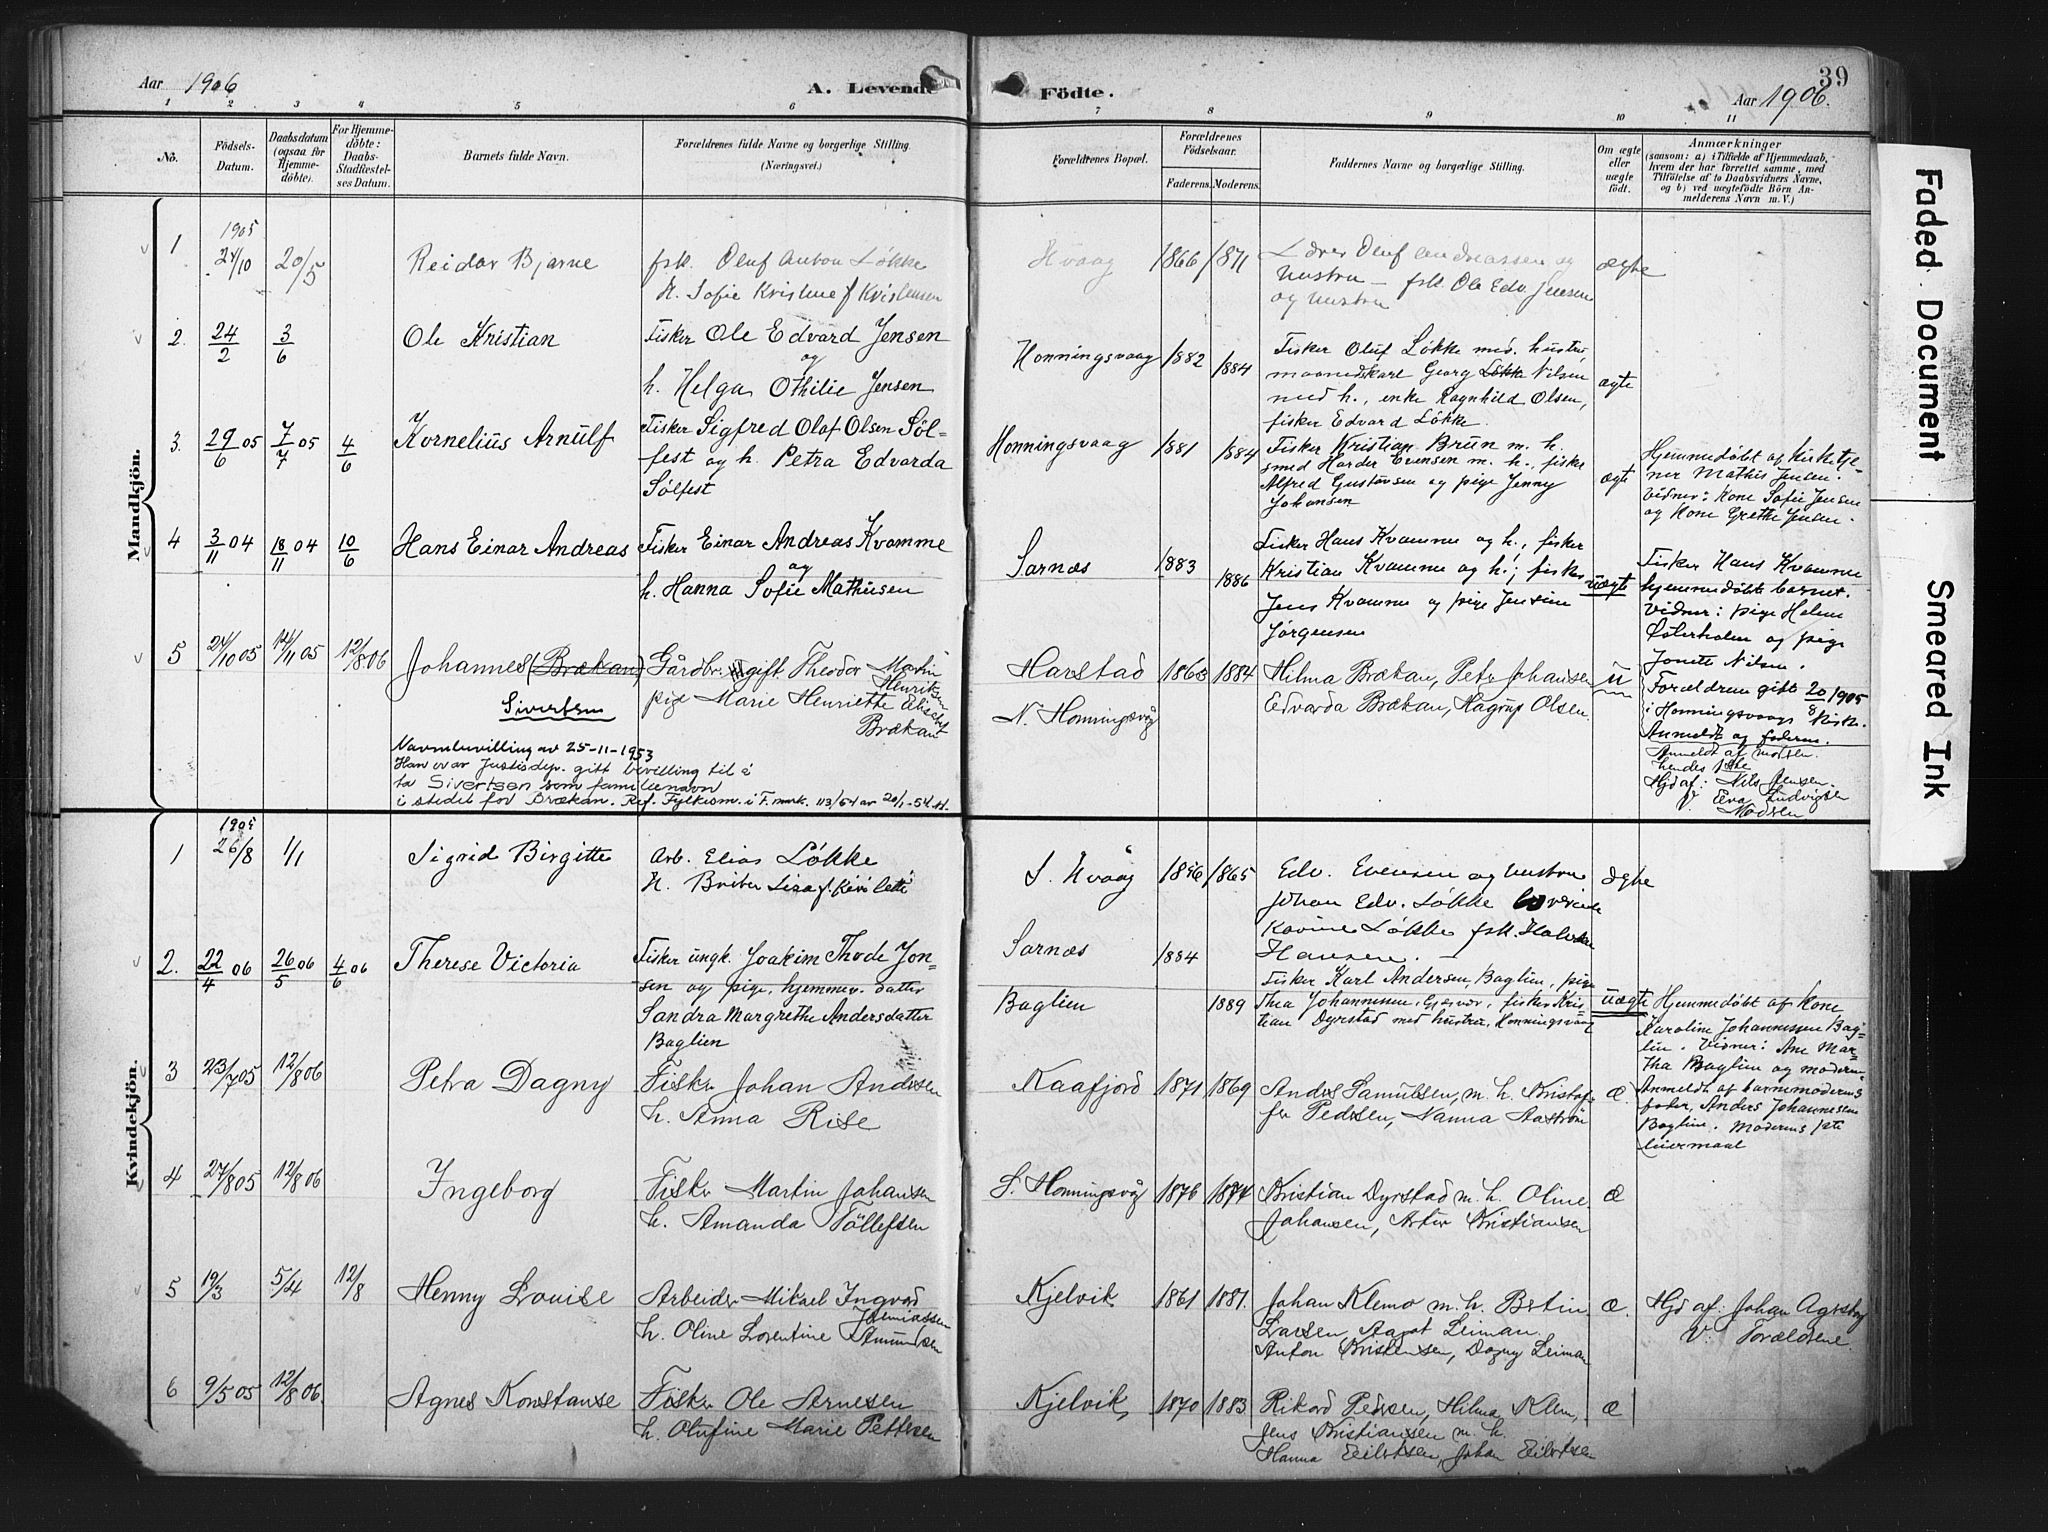 Aar 1906
A. Levende
Födte.
Aar 1906.
39
1 2 3 4 5 6 7 8 9 10 11
No.
Födsels-
Datum.
Daabsdatum
(ogsaa for
Hjemme-
döbte).
For Hjemme-
döbte:
Daabs-
Stadfæstel-
ses Datum.
Barnets fulde Navn.
Forældrenes fulde Navne og borgerlige Stilling.
(Næringsvei.)
Forældrenes Bopæl.
Forældrenes
Födselsaar.
Faderens. Moderens.
Faddernes Navne og borgerlige Stilling.
Om ægte
eller
uægte
födt.
Anmærkninger
(saasom: a) i Tilfælde af Hjemmedaab,
hvem der har forrettet samme, med
Tilföielse af to Daabsvidners Navne,
og b) ved uægtefödte Börn An-
melderens Navn m. V.)
Mandkjön.
1
1905
24/10
20/5
Reidar Bjarne
fsk. Oluf Anton Løkke
H. Sofie Kristine f Kristensen
Hvaag
1866 1871
Lærer Oluf Andreassen og
Hustru - fsk. Ole Edv. Jensen
og Hustru
ægte
2. 24/2 3/6
Ole Kristian
Fisker Ole Edvard Jensen
og
h. Helga Othilie Jensen
Honningsvaag
1882 1884
Fisker Oluf Løkke med hustru,
maanedskarl Georg Løkke Nilsen
med h., enke Ragnhild Olsen,
fisker Edvard Løkke.
ægte
3. 29/6 05 7/7 05 4/6
Kornelius Arnulf
Fisker Sigfred Olaf Olsen Søl-
fest og h. Petra Edvarda
Sølfest
Honningsvaag
1881 1884
Fisker Kristian Brun m. h.
smed Harder Evensen m. h., fisker
Alfred Gustavsen og pige Jenny
Johansen
ægte
Hjemmedøbt af kirketje-
ner Mathis Jensen.
Vidner: Kone Sofie Jensen
og Kone Grethe Jensen.
4 3/11 04 18/11 04 10/6
Hans Einar Andreas
Fisker Einar Andreas Kvamme
og
h. Hanna Sofie Mathisen
Sarnæs
1883 1886
Fisker Hans Kvamme og h., fisker
Kristian Kvamme og h.; fisker
Jens Kvamme og pige Jensine
Jørgensen
uægte
Fisker Hans Kvamme
hjemmedøbte barnet.
Vidner: pige Helene
Østerholm og pige
Jonette Nilsen.
5 24/10 05 12/11 05 12/8 06
Johannes (Brækan)
Sivertsen
Gårdbr. gift Theodor Martin
Henriksen
pige Marie Henriette Elisabet
Brækan
Harstad
N. Honningsvåg
1863 1884
Hilma Brækan, Petr Johansen
Edvarda Brækan, Hagrup Olsen.
u
Forældrene gift 20/8 1905
i Honningsvaags kirke.
Anmeldt og faderen.
Anmeldt af moren
hendes 1ste
Hjd af: Nils Jensen
Eva Ludvigsen
Madsen
Navnebevilling av 25-11-1953
Han var Justisdep. gitt bevilling til å
ta Sivertsen som familienavn
i stedet for Brækan. Ref. Fylkesm. i F.mark. 113/54 av 20/1-54.
Kvindekjön.
1
1905
26/8
1/1
Sigrid Birgitte
Arb. Elias Løkke
S. Hvaag
1865
Edv. Evensen og Hustru
Johan Edv. Løkke
Løkke fsk.
Hansen.
ægte
2. 22/4 06 26/5 06 4/6 06
Therese Victoria
Fisker ungk. Joakim Thode Jon-
sen og pige, hjemmev. datter
Sandra Margrethe Andersdatter
Baglien
Sarnæs
1884
Baglien
1889
Fisker Karl Andersen, Baglien, pige
Thea Johannesen, Gjæsvær, fisker Kris-
tian Dyrstad med hustru, Honningsvaag
uægte
Hjemmedøbt af kone
Karoline Johannessen Bag-
lien. Vidner: Ane Mar-
tha Baglien og moderen.
Anmeldt af barnemoderens
fader, Anders Johannesen
Baglien. Moderens 1ste
leiermaal
3 23/7 05 12/8 06
Petra Dagny
Fisker Johan Andersen
h. Anna Rise
Kaafjord
1871 1869
Anders Samuelsen, m. h. Kristof-
fer Pedersen, Nanna Aastrøm
æ.
4 27/8 05 12/8 06
Ingeborg
Fisker Martin Johansen
h. Amanda Tollefsen
S. Honningsvåg
1876 1874
Kristian Dyrstad m. h. Oline
Johansen, Artur Kristiansen
æ
5 19/3 5/4 12/8
Henny Lovise
Arbeider Mikael Ingvard
Jeremiassen
h. Oline Lorentine Amundsen
Kjelvik
1861 1881.
Johan Klemo m. h. Betin
Larsen, Aagot Leiman.
Anton Kristensen, Dagny Leiman
æ.
Hjd af: Johan
V: Forældrene
6 9/5 05 12/8 06.
Agnes Konstanse
Fisker Ole Arnesen
h. Olufine Marie Pettersen
Kjelvik
1870 1883
Rikard Pedersen, Hilma Klem,
Jens Kristiansen m. h.
Hanna Eilertsen, Johan Eilertsen
æ
Faded Document
Smeared Ink